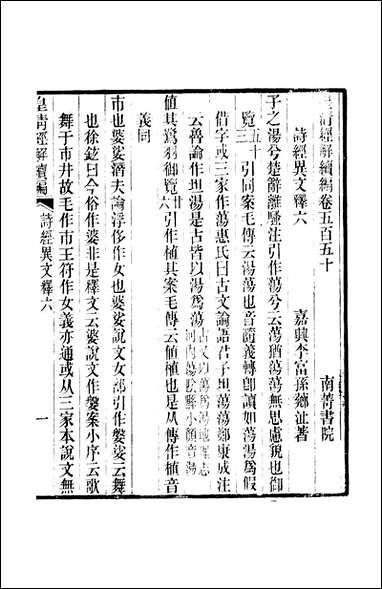 皇清經解續編卷五百五十　南菁書院
詩經異文釋六　嘉興李富孫薌沚著
子之湯兮楚辭離騷注引作蕩兮云蕩猶蕩蕩無思慮貌也御
覽五十三引同案毛傳云湯蕩也音隨義轉卽讀如蕩湯爲假
借字或三家作蕩惠氏曰古文論語君子坦蕩蕩鄭康成注
云魯論作坦湯是古皆以湯爲蕩古文又以蕩爲湯地理志河内蕩陰縣小顏音湯
値其鷺羽御覽引作植其案毛傳云値植也是从傳作植音
義同
市也婆娑潛夫論浮侈作女也婆娑說文女部引作媻娑云舞
也徐鉉曰今俗作婆非是釋文云婆說文作媻案小序云歌
舞于市井故毛作市王符作女義亦通或从三家本說文無
皇清經解續編　詩經異文釋六　一